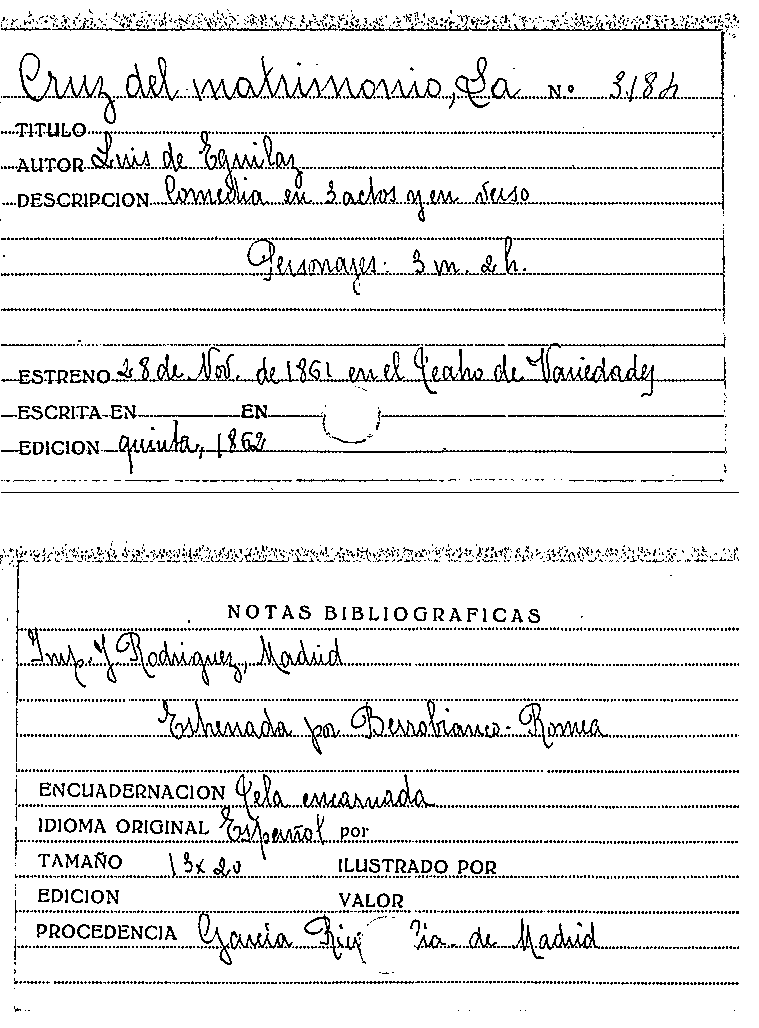 Cruz del matrimonio, La Nº 3184
TITULO
AUTOR Luis de Eguilaz
DESCRIPCION Comedia en 3 actos y en verso
Personajes: 3 m. 2 h.
ESTRENO 28 de Nov. de 1861 en el Teatro de Variedades
ESCRITA EN EN
EDICION quinta, 1862
NOTAS BIBLIOGRAFICAS
Imp. J. Rodriguez, Madrid
Estrenada por Berrobianco - Romea
ENCUADERNACION Tela encarnada
IDIOMA ORIGINAL Español por
TAMAÑO 13x20 ILUSTRADO POR
EDICION VALOR
PROCEDENCIA García Rico de Madrid